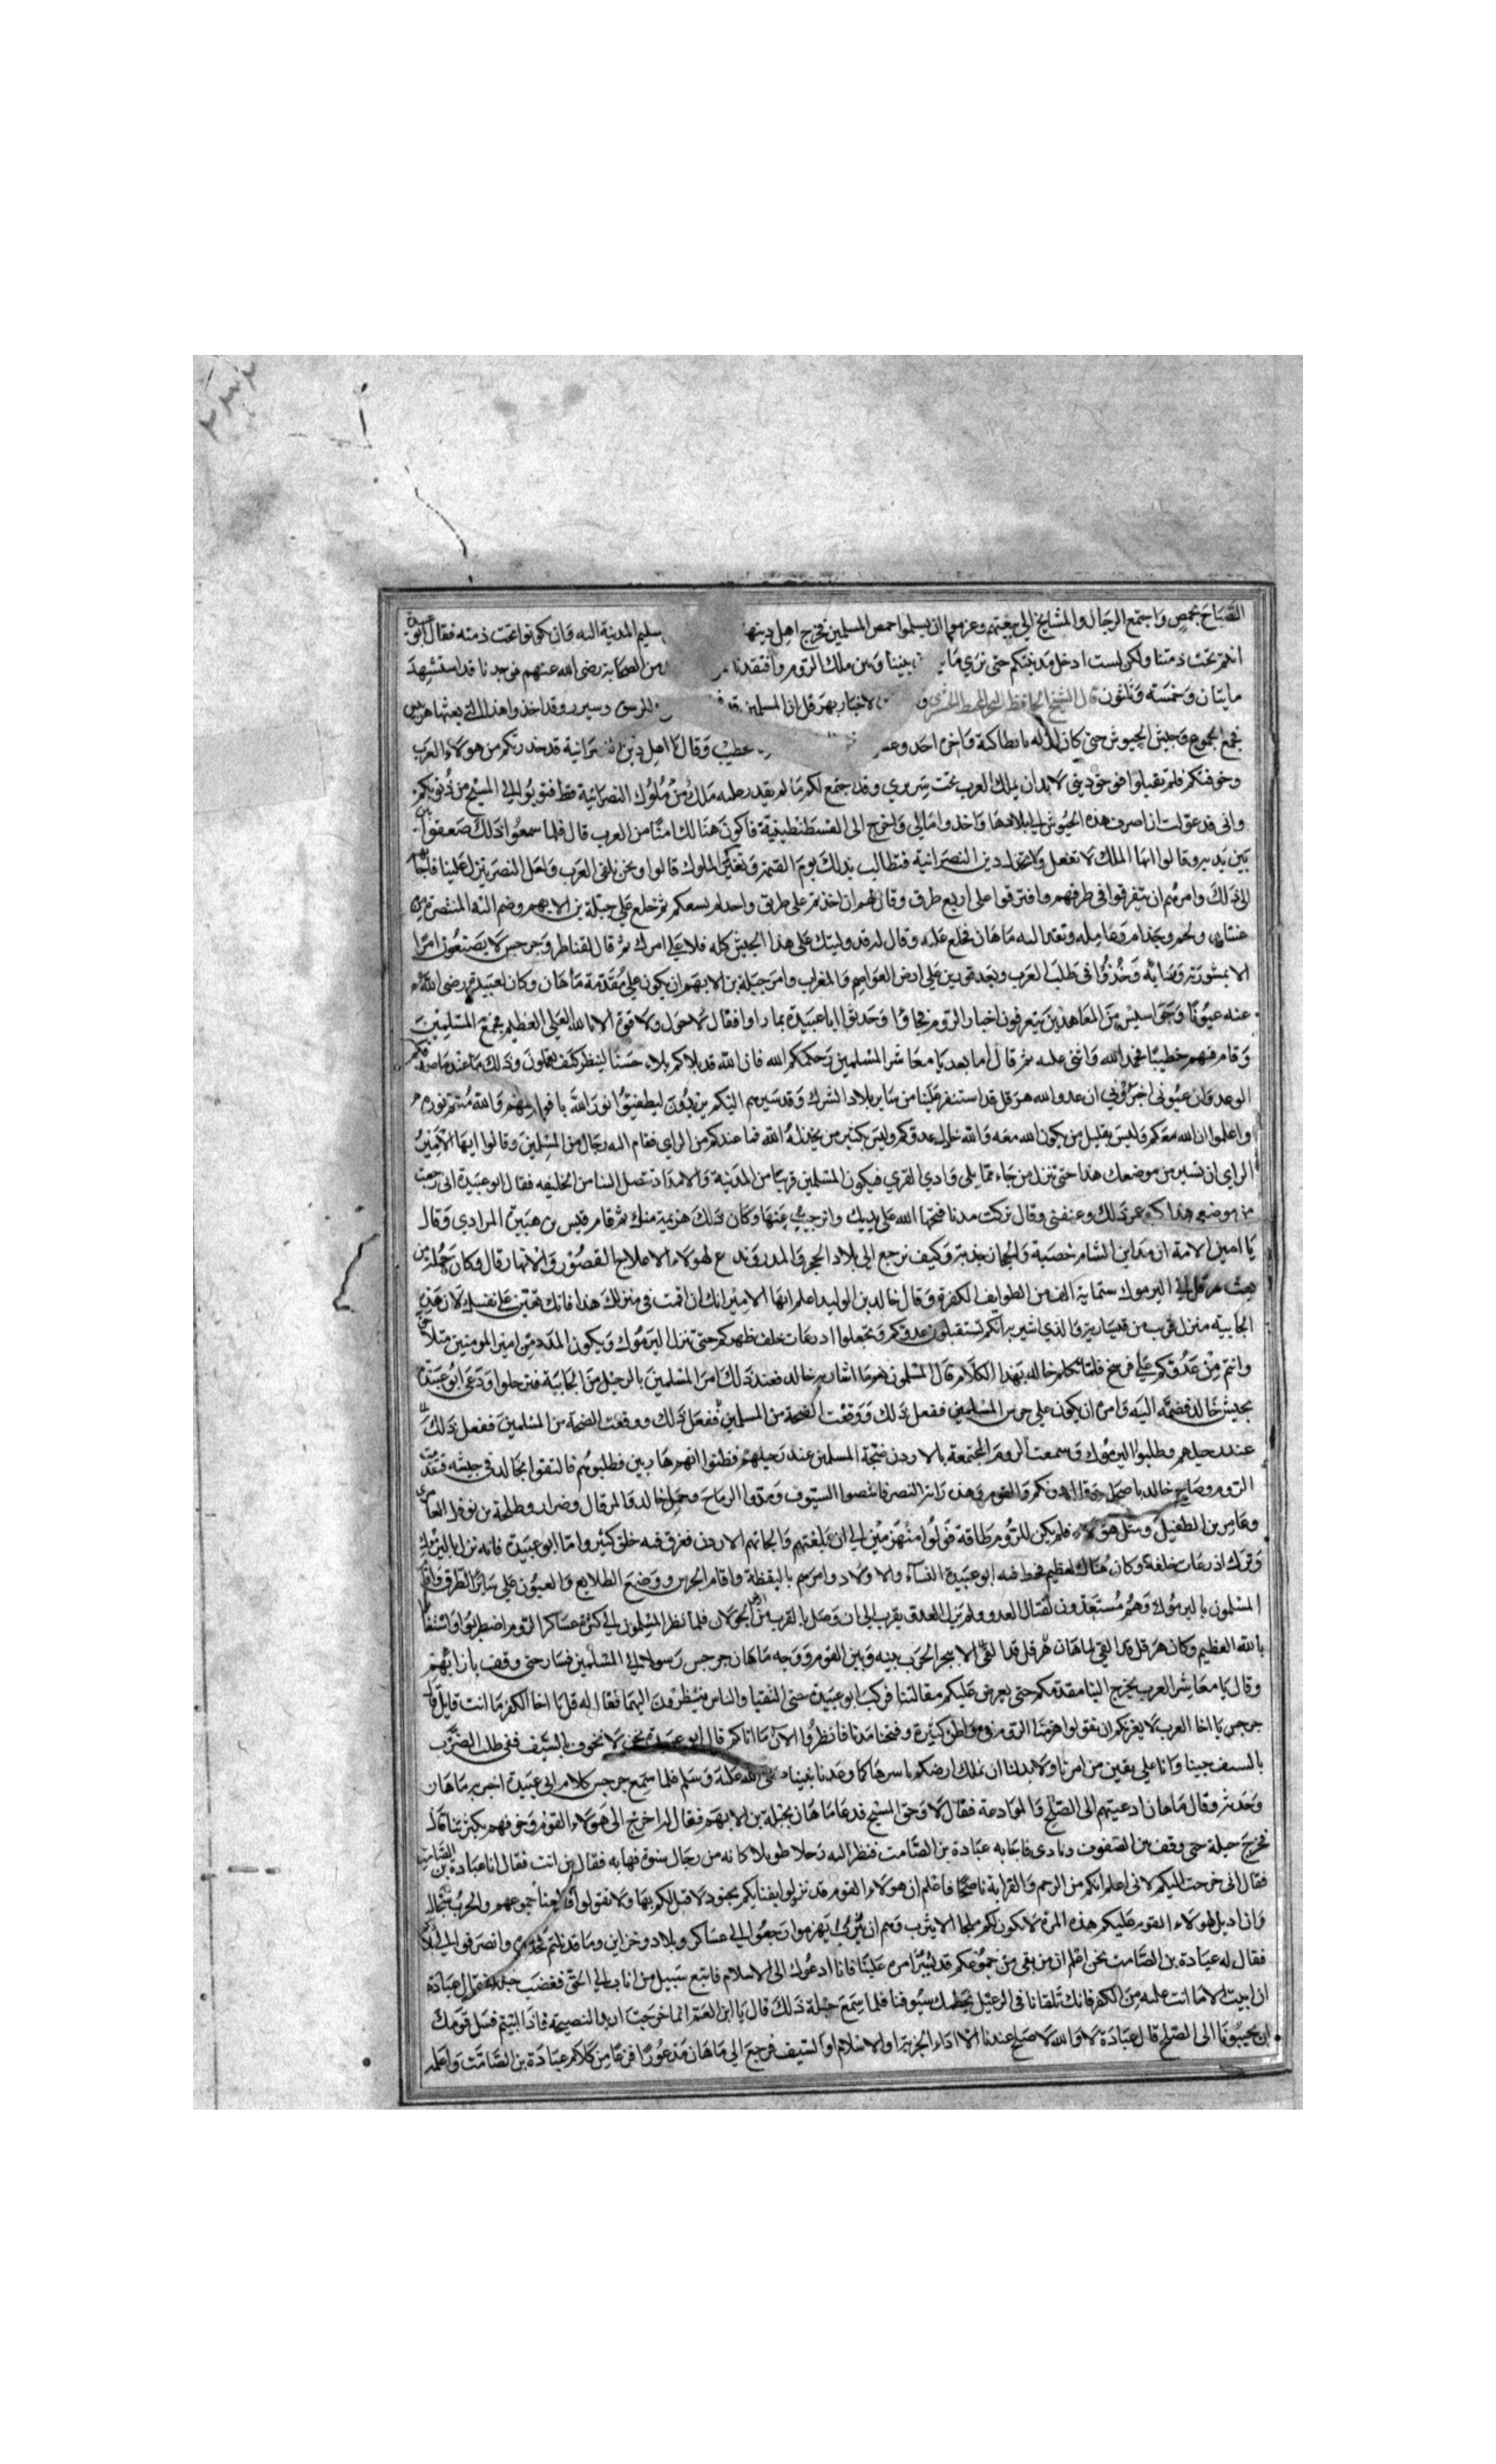 الصباح بحمص واجتمع الرجال والمشايخ الى بيعتهم وعزموا ان يسلموا حمص المسلمين فخرج اهل دينها سليم المدينة اليه وان يكونوا تحت ذمته فقال ابو عبيدة
انتم تحت ذمتنا ولكن لست ادخل مدينتكم حتى نرى ما بيننا وبين ملك الروم وافتقدنا من الصحابة رضى الله عنهم فوجدنا قد استشهد
مايتان وخمسة وثلثون قال الشيخ الحافظ لاخبار بهرقل ان المسلمين وقد اخذوا هذا الذي بعثها هربيس
فجمع الجموع وجيش الجيوش حتى كان اوله بانطاكية واخره احد وعشر خطيب وقال يا اهل دين النصرانية قد حذرتكم من هولاء العرب
وخوفتكم فلم تقبلوا فوحق ديني لا بد ان يملك العرب تحت سريري وقد جمع لكم ما لم يقدر عليه ملك من ملوك النصرانية قط فتوبوا الى المسيح من ذنوبكم
وانى قد عولت ان اصرف هذه الجيوش الى بلادها واخذ وامالي واخرج الى القسطنطينية فاكون هنالك امنا من العرب قال فلما سمعوا ذلك صعقوا
بين يديه وقالوا ايها الملك لا تفعل ولا تخذل دين النصرانية فتطالب بذلك يوم القيمة وتعيرك الملوك قالوا ونحن نلقى العرب ولعل النصر ينزل علينا فاجابهم
الى ذلك وامرهم ان يتفرقوا في طرقهم وافترقوا على اربع طرق وقال لهم ان اخذتم على طريق واحد لم يسعكم ثم خلع على جبلة بن الايهم وضم اليه المتنصرة من
غسان ولخم وجذام وعامله وتقدم اليه ماهان فخلع عليه وقال له قد وليتك على هذا الجيش كله فلا على امرك ثم قال لقناطر وجرجيس لا يصنعون امرا
الا بمشورته وراية وخذوا في طلب العرب وبعد قورين على ارض العواصم والمغراب وامر جبلة بن الايهم ان يكون على مقدمة ماهان وكان لعبيدة رضى الله
عنه عيونا وجواسيس من المعاهدين يتعرفون اخبار الروم فجاوا وحدثوا ابا عبيدة بما راوا فقال لا حول ولا قوة الا بالله العلي العظيم فجمع المسلمين
وقام فيهم خطيبا فحمد الله واثنى عليه ثم قال اما بعد يا معاشر المسلمين رحمكم الله فان الله قد بلاكم بلاء حسنا لينظر كيف تعملون وذلك بما عند ما صدقكم
الوعد وان عيوني اخبروني ان عدو الله هرقل قد استنفر علينا من ساير بلاد الشرك وقد سيرهم اليكم يريدون ليطفئوا نور الله بافواههم والله متم نوره
واعلموا ان الله معكم وليس بقليل من يكون الله معه والله خاذل عدوكم وليس بكثير من يخذله الله فما عندكم من الراي فقام اليه رجال من المسلمين وقالوا ايها الامير
الراي ان تسير من موضعك هذا حتى تنزل من جاء مما يلى وادي القري فيكون المسلمين قريبا من المدينة والامداد تصل الينا من الخليفه فقال ابو عبيدة انى رجعت
من موضعي هذا كره عمر ذلك وعنفني وقال تركت مدنا فتحها الله على يديك وانزحت عنها وكان ذلك هزيمة منك ثم قام قيس بن هبيرة المرادي وقال
يا امين الامة ان مداين الشام خصبة والحجاز جدبة وكيف نرجع الى بلاد الحجر والمدر وندع لهولاء الاعلاج القصور والانهار قال وكان جملة من
بعث هرقل الى اليرموك ستماية الف من الطوايف الكفرة وقال خالد بن الوليد اعلم ايها الامير انك ان اقمت في منزلك هذا فانك تعين على نفسك لان هذه
الجابية منزل قريب من قيسارية والذي اشير به انكم تستقبلون عدوكم وتجعلوا اذرعات خلف ظهركم حتى تنزل اليرموك ويكون المدد من امير المومنين متلاحق
وانتم من عدوكم على فرسخ فلما تكلم خالد بهذا الكلام قال المسلمون نعم ما اشار به خالد فعند ذلك امر المسلمين بالرحيل من الجابية فترحلوا ودعى ابو عبيدة
بجيش خالد فضمه اليه وامره ان يكون على حرس المسلمين ففعل ذلك ووقعت الضجة من المسلمين ففعل ذلك ووقعت الضجة من المسلمين ففعل ذلك
عند رحيلهم وطلبوا اليرموك وسمعت الروم المجتمعة بالاردن ضجة المسلمين عند رحيلهم فظنوا انهم هاربين فطلبوهم فالتقوا بخالد في جيشه فعند
الروم وصاح خالد باصحابه وقال دونكم والقوم وهذه راية النصر فانتصوا السيوف ومدوا الرماح وحمل خالد والمرقال وضرار وطلحة بن نوفل العامري
وعامر بن الطفيل ومثل هولاء فلم يكن للروم طاقة فولوا منهزمين الى ان غلبتهم والجاتهم الاردن فغرق فيه خلق كثير واما ابو عبيدة فانه نزل باليرموك
وترك اذرعات خلفه وكان هناك تل عظيم فحط فيه ابو عبيدة النساء والاولاد وامرهم باليقظة واقام الحرس ووضع الطلايع والعيون على ساير الطرق واقام
المسلمون باليرموك وهم مستعدون لقتال العدو ولم يزل العدو يقرب الى ان وصل بالقرب من الجولان فلما نظر المسلمون الى كثرة عساكر الروم اضطربوا واستغاثوا
بالله العظيم وكان هرقل قد القي لماهان هرقل قد القى الامر الحرب بينه وبين القوم ووجه ماهان جرجس رسولا الى المسلمين فسار حتى وقف بازايهم
وقال يا معاشر العرب يخرج الينا مقدمكم حتى يعرض عليكم مقالتنا فركب ابو عبيدة حتى التقيا والناس ينظرون اليهما فقال له قل يا اخا الكفر ما انت قايل قال
جرجس يا اخا العرب لا يغرنكم ان تقولوا هزمنا الروم في مواطن كثيرة وفتحنا مدنا فانظروا الان ما اتاكم قال ابو عبيدة نحن لا نخوف بالسيف ففي طلب الضرب
بالسيف جينا وانا على يقين من امرنا ولا بد لنا ان نملك ارضكم باسرها كما وعدنا نبينا صلى الله عليه وسلم فلما سمع جرجس كلام ابي عبيدة اخبر به ماهان
وحدثه وقال ماهان ادعيتهم الى الصلح والموادعة فقال لا وحق المسيح فدعا ماهان بجبلة بن الايهم فقال له اخرج الى هولاء القوم وخوفهم بكثرتنا قال
فخرج جبلة حتى وقف بين الصفوف ونادى فاجابه عبادة بن الصامت فنظر اليه رجلا طويلا كانه من رجال شنوة فهابه فقال من انت فقال انا عبادة بن الصامت
فقال انى خرجت اليكم لانى اعلم انكم من الرحم والقرابة ناصحا فاعلم ان هولاء القوم قد نزلوا بفنايكم بجنود لا قبل لكم بها ولا تقولوا انا هزمنا جموعهم والحرب سجال
وان اديل لهولاء القوم عليكم هذه المرة لا يكون لكم ملجا الا يثرب وهم ان يهزموا رجعوا الى عساكر وبلاد وخزاين وما قد نلتم فخذوه وانصرفوا الى بلادكم
فقال له عبادة بن الصامت نحن اعلم ان من بقى من جموعكم قد تبين امره علينا فانا ادعوك الى الاسلام فاتبع سبيل من اناب الى الحق فغضب جبلة فقال عبادة
ان ابيت الا ما انت عليه من الكفر فانك تلقانا في الرعيل يحطمك سيوفنا فلما سمع جبلة ذلك قال يا ابن العم انما خرجت اريد النصيحة فاذا ابيتم فسل قومك
ان يجيبونا الى الصلح قال عبادة لا والله لا صلح عندنا الا اداء الجزية او الاسلام او السيف فرجع الى ماهان مذعورا فزعا من كلام عبادة بن الصامت واعلمه